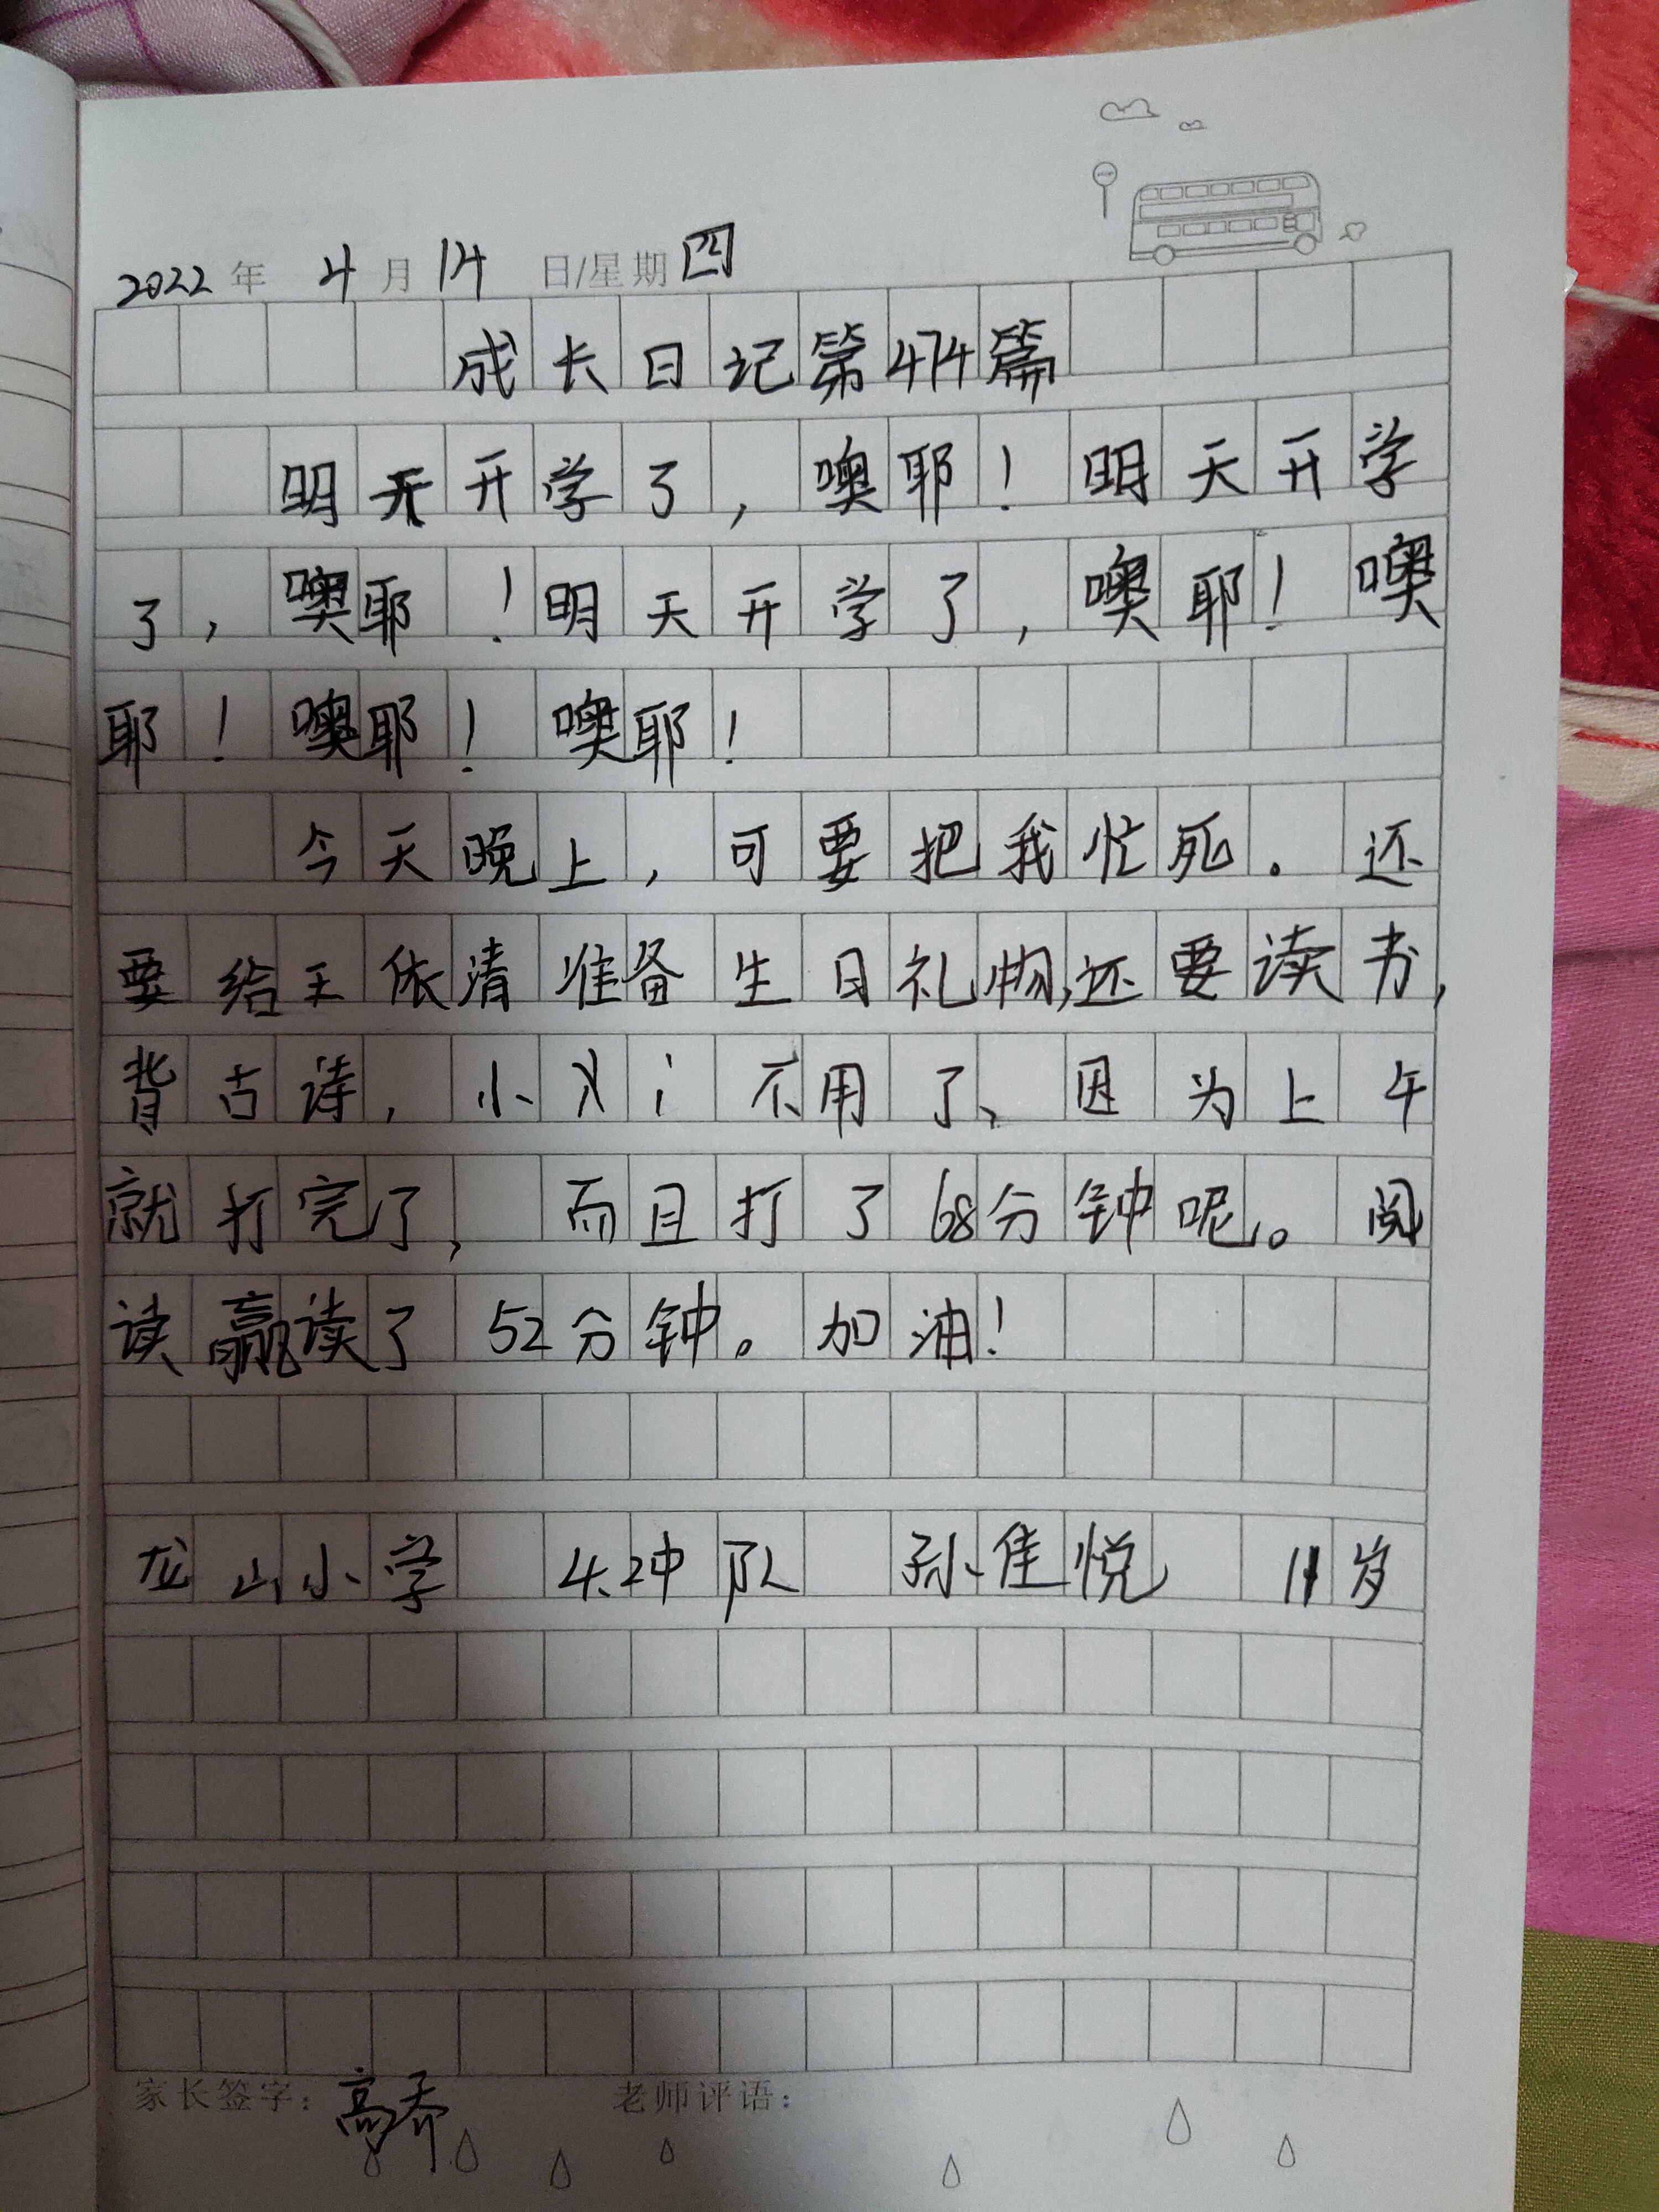 2022年 4月14日/星期四
成长日记第474篇
明天开学了，噢耶！明天开学
了，噢耶！明天开学了，噢耶！噢
耶！噢耶！噢耶！
今天晚上，可要把我忙死。还
要给王依清准备生日礼物，还要读书，
背古诗，小义i不用了、因为上午
就打完了，而且打了68分钟呢。阅
读赢读了52分钟。加油！
龙山小学 4.2冲队 孙佳悦 11岁
家长签字：高乔 老师评语：